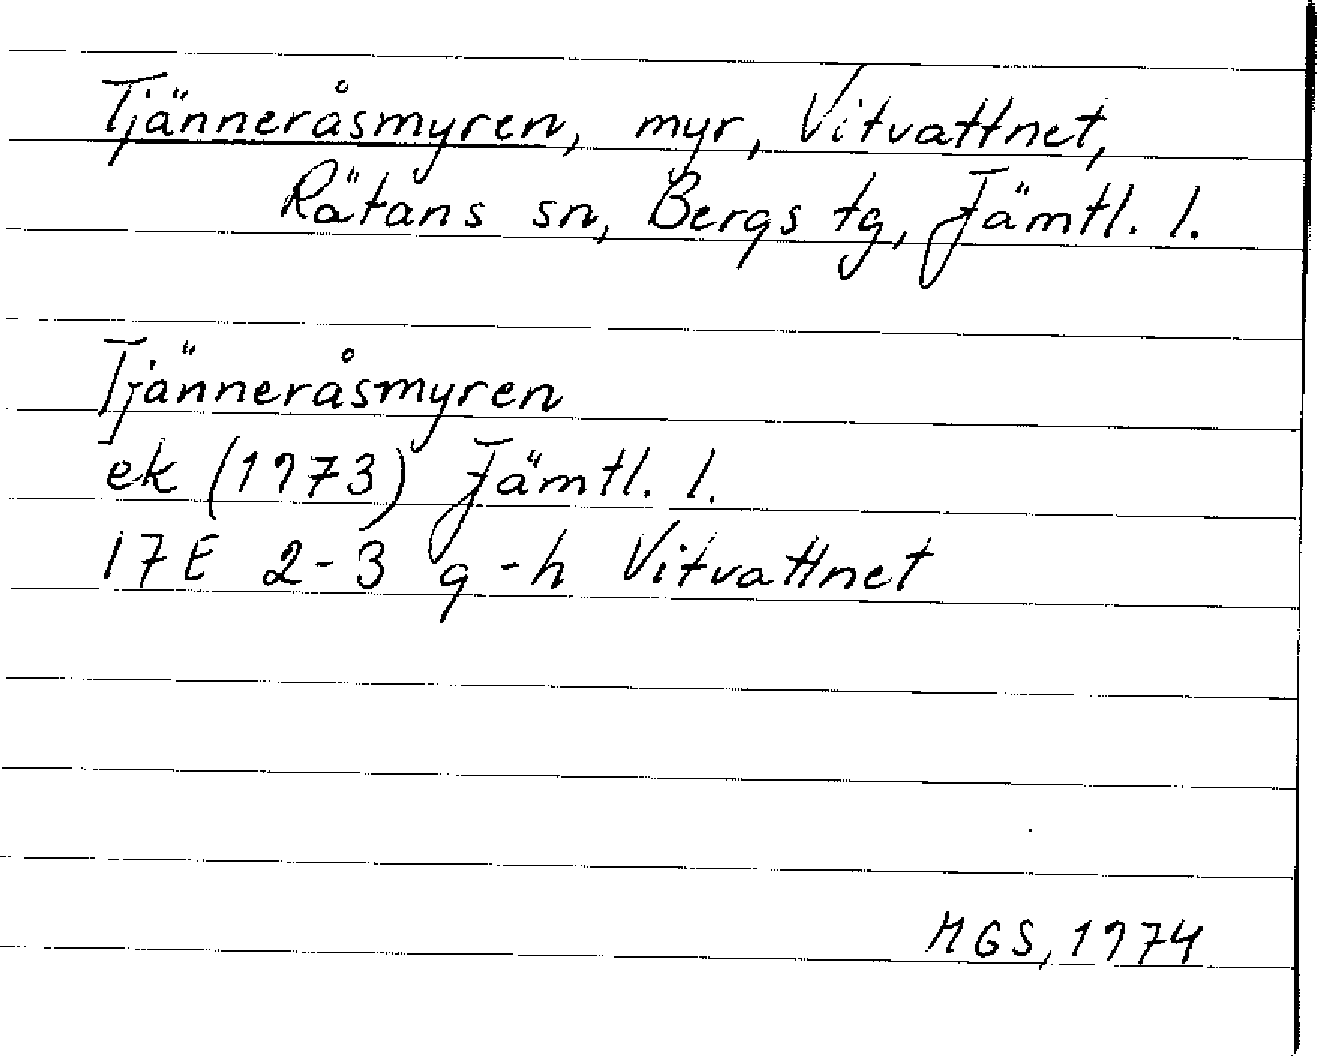 Tjänneråsmyren, myr, Vitvattnet,
Rätans sn, Bergs tg, Jämtl. l.
Tjänneråsmyren
ek (1973) Jämtl. l.
17E 2-3 g-h Vitvattnet
MGS, 1974